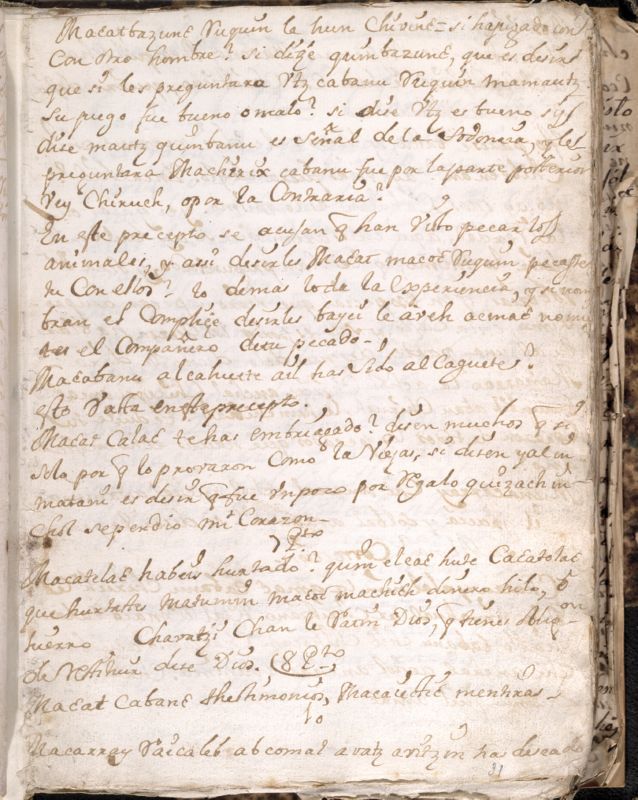 Macatbazune Ruquin le hun Chivine = si ha pizado con
Con otro hombre? si dize quinbazune, que es desir
que si les preguntara Vtz cabanu Ruquin mamautz
su juego fue bueno o malo? si dise Vtz es bueno
dise mautz quinbanu es señal de la
preguntara Macheriix cabanu fue por la parte posterior
Vey Chiruch, o por la Contraria?
En este precepto se acusan q han visto pecar los
animales, y asi desirles Macat macoc Ruquin
tu Con ellos? lo demas lo da la Experiencia, y si nom
bran el Complise desirles bayei le areh acmac no
el Compañero de tu pecado -
Macabanu alcahuete aui has sido alcaguete?
esto Valta en este precepto.
Macat Calac te has embriagado? disen muchos q si
solo por q lo provaron Como la Viejas, si disen yal in
matam es desir q fue vn poco por Regalo quizach in
Chol se perdio mi Corazon -
7 Pto
Macatelac habeis hurtado? quin eleac hute Cacatolac
que hurtates Matumin macoc machich dinero hilo, o
hierro Chavatzi Chan le Vaim Dios, q tienes obligon
de restituir dise Dios. (8 Pto
Macat Cabane thestimonios, Macauctic mentiras -
10
Macarray Vaicaleb abcomac avatz avitzin has deseado
31